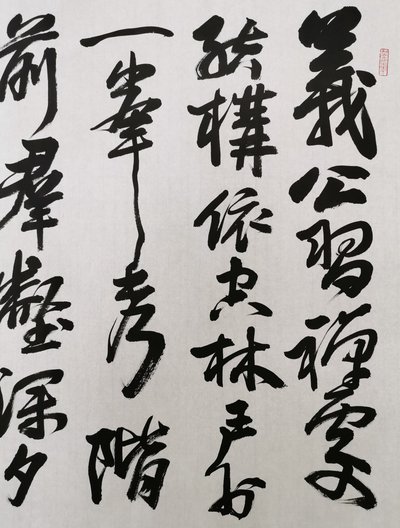 義公習禪處
結構依空林戶外
一峯秀階
前羣壑深夕